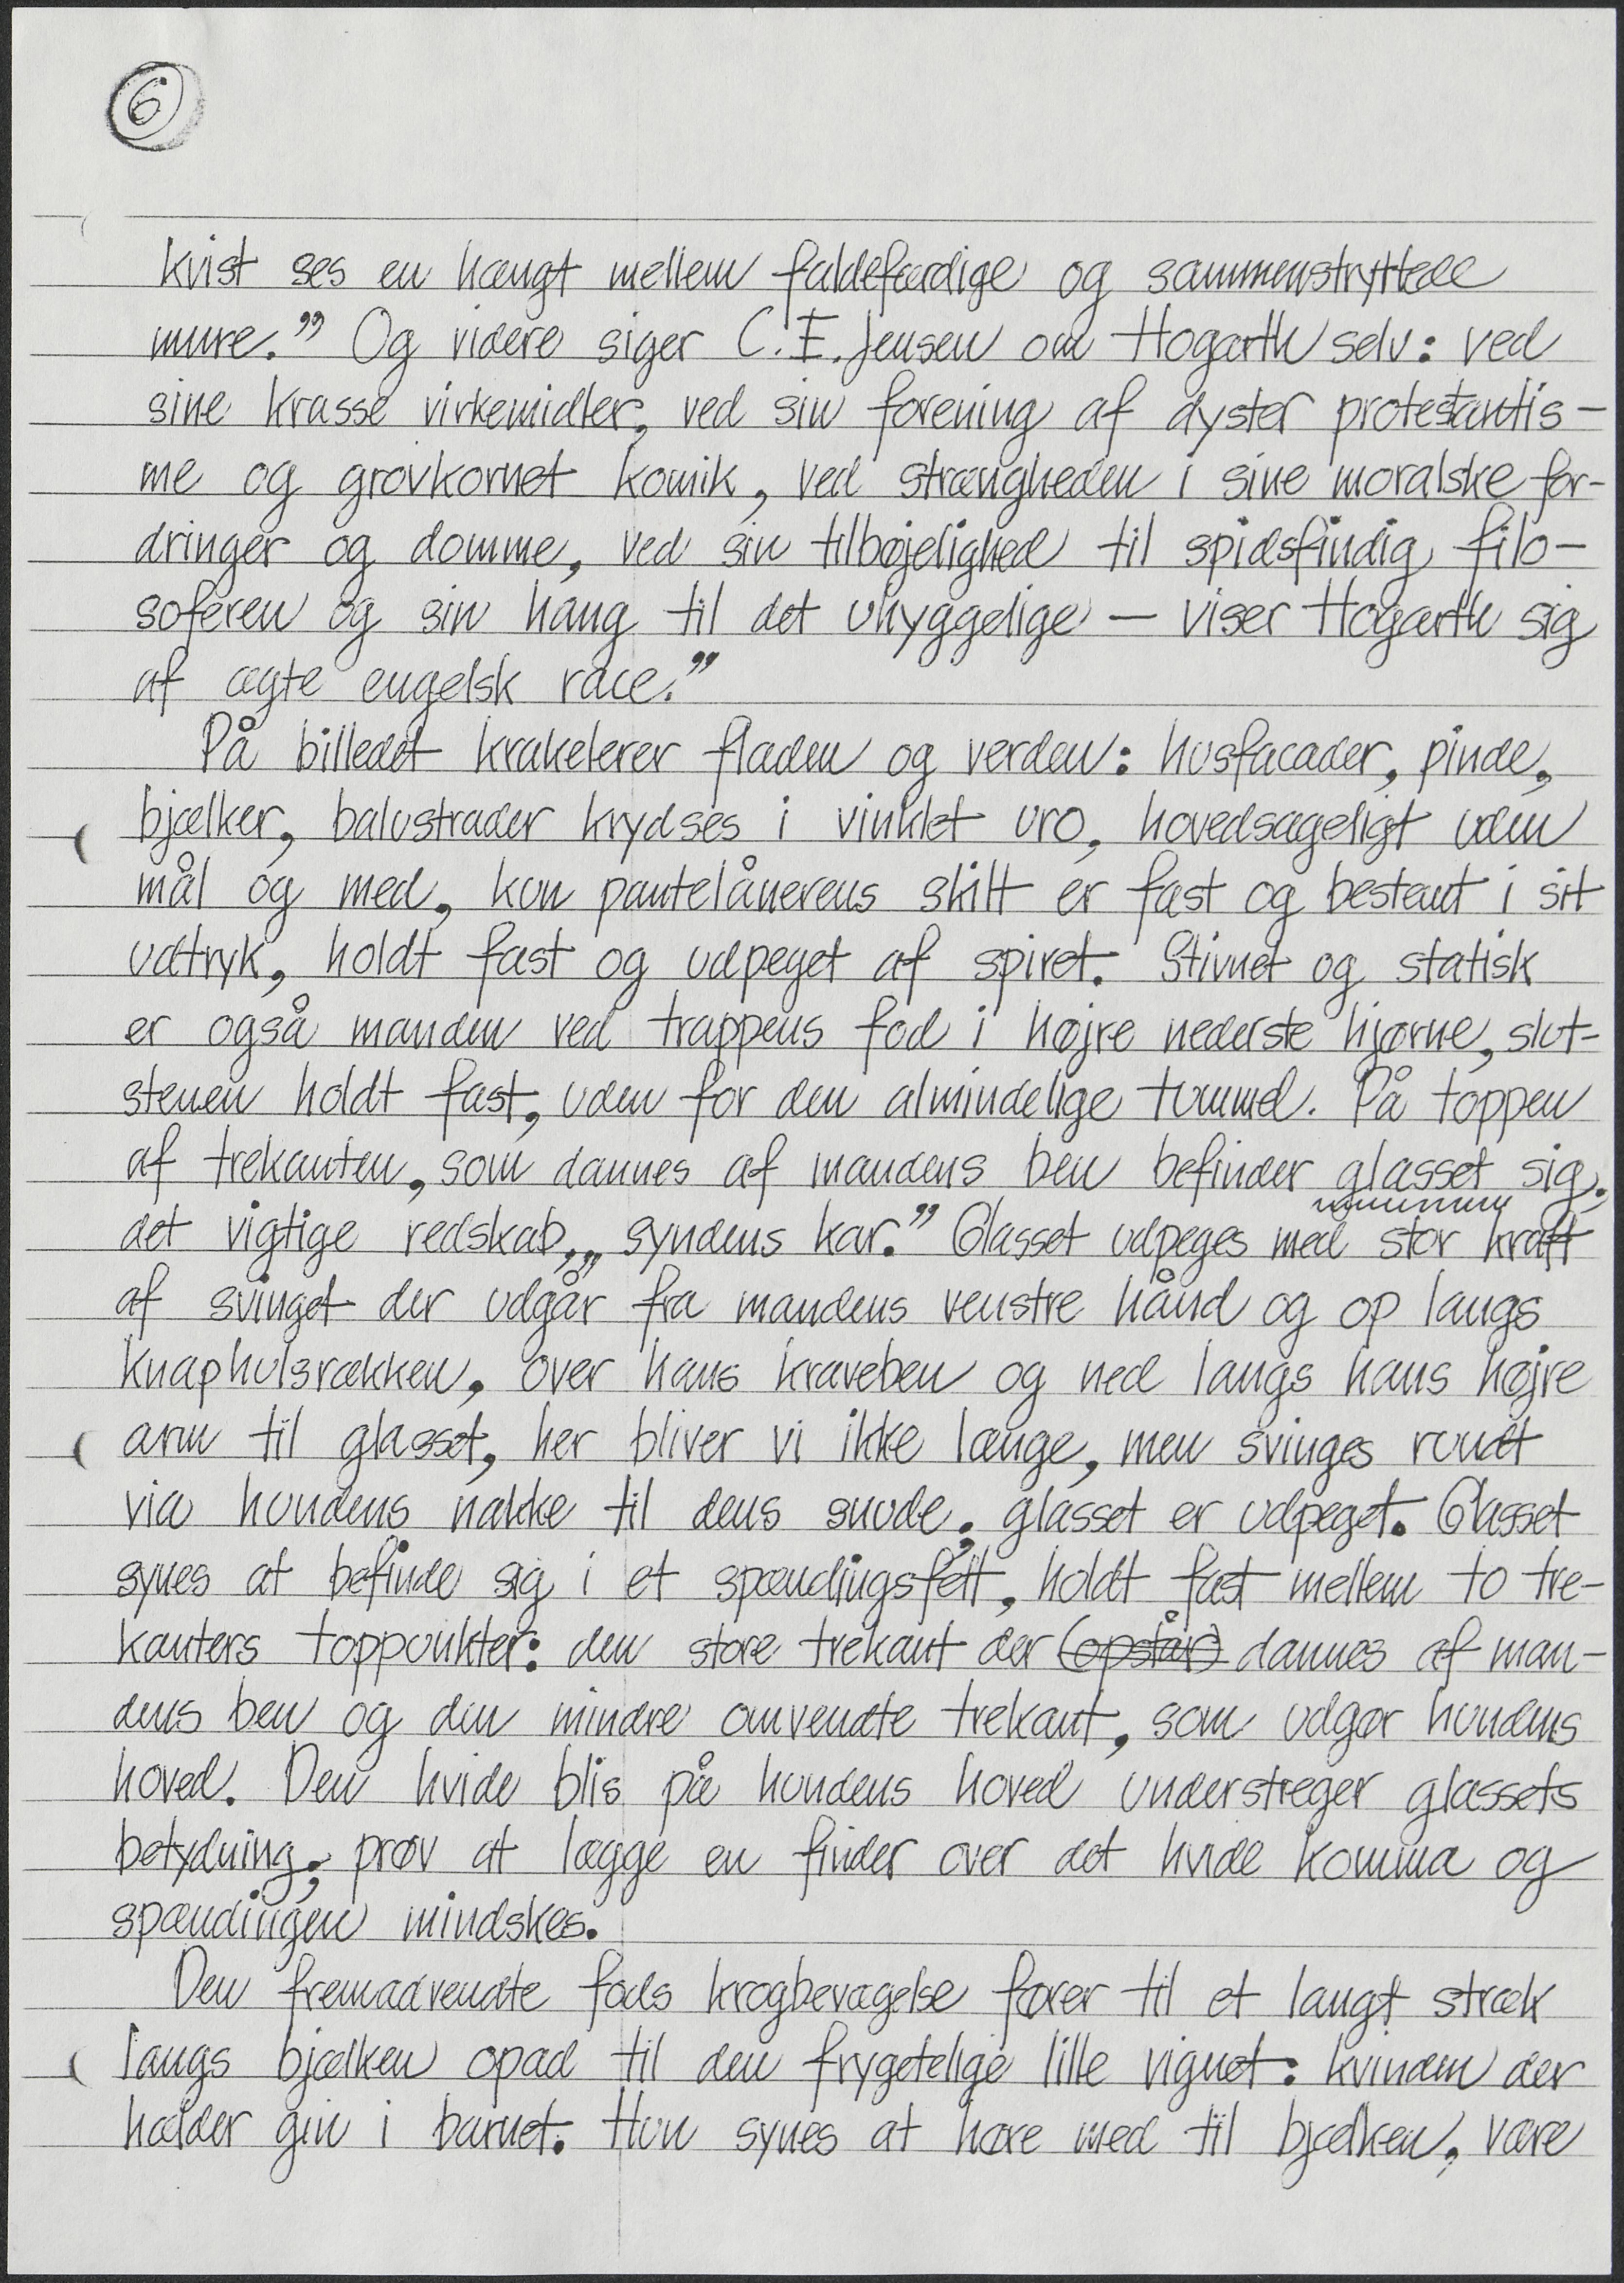 6
kvist ses en hængt mellem faldefærdige og sammenstryttede
mure.” Og videre siger C.E. Jensen om Hogarth selv: ved
sine krasse virkemidler, ved sin forening af dyster protestantis-
me og grovkornet komik, ved strængheden i sine moralske for-
dringer og domme, ved sin tilbøjelighed til spidsfindig filo-
soferen og sin hang til det uhyggelige — viser Hogarth sig
af ægte engelsk race.”
På billedet krakelerer fladen og verden: husfacader, pinde,
bjælker, balustrader krydses i vinklet uro, hovedsageligt uden
mål og med, kun pantelånerens skilt er fast og bestemt i sit
udtryk, holdt fast og udpeget af spiret. Stivnet og statisk
er også manden ved trappens fod i højre nederste hjørne, slut-
stenen holdt fast, uden for den almindelige tummel. På toppen
af trekanten, som dannes af mandens ben befinder glasset sig,
det vigtige redskab, „syndens kar.” Glasset udpeges med stor kraft
af svinget der udgår fra mandens venstre hånd og op langs
knaphulsrækken, over hans kraveben og ned langs hans højre
arm til glasset, her bliver vi ikke længe, men svinges rundt
via hundens nakke til dens snude; glasset er udpeget. Glasset
synes at befinde sig i et spændingsfelt, holdt fast mellem to tre-
kanters toppunkter: den store trekant der (opstår) dannes af man-
dens ben og den mindre omvendte trekant, som udgør hundens
hoved. Den hvide blis på hundens hoved understreger glassets
betydning; prøv at lægge en finder over det hvide komma og
spændingen mindskes.
Den fremadvendte fods krogbevægelse fører til et langt stræk
langs bjælken opad til den frygetelige lille vignet: kvinden der
hælder gin i barnet. Hun synes at høre med til bjælken, være